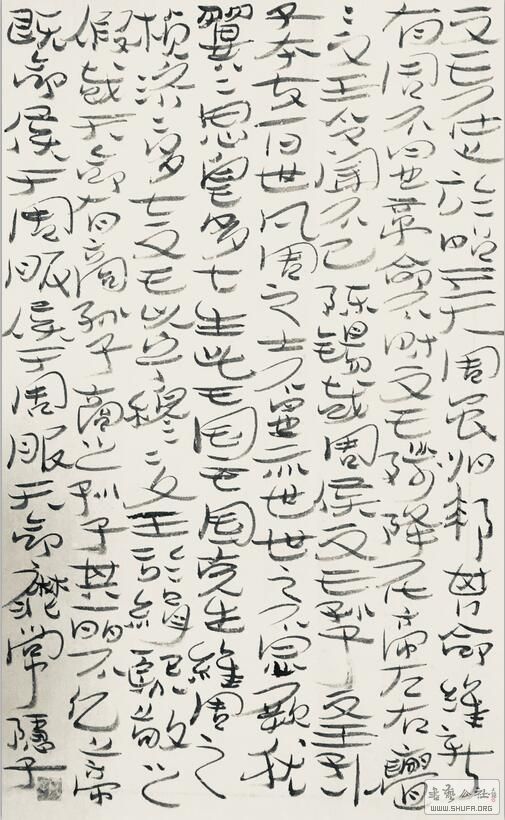 文王在上於昭于天周雖旧邦其命維新
有周不显帝命不时文王陟降在帝左右亹
〻文王令聞不已陳錫哉周侯文王孫 文王孫
子本支百世凡周之士不显亦世世之不显厥猶
翼〻思皇多士生此王国王国克生維周之
楨济〻多士文王以宁穆〻文王於緝熙敬止
假哉天命有商孫子商之孫子其丽不亿上帝
既命侯于周服侯于周服天命靡常 隱子
書藝公社
WWW.SHUFA.ORG